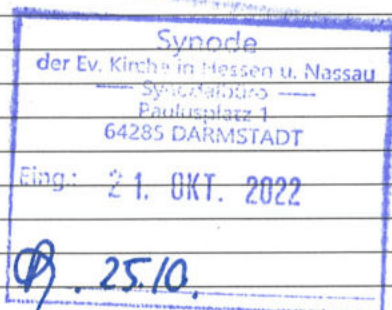 Synode
der Ev. Kirche in Hessen u. Nassau
— Synodalbüro —
Paulusplatz 1
64285 DARMSTADT
Eing.: 21. OKT. 2022
25.10.